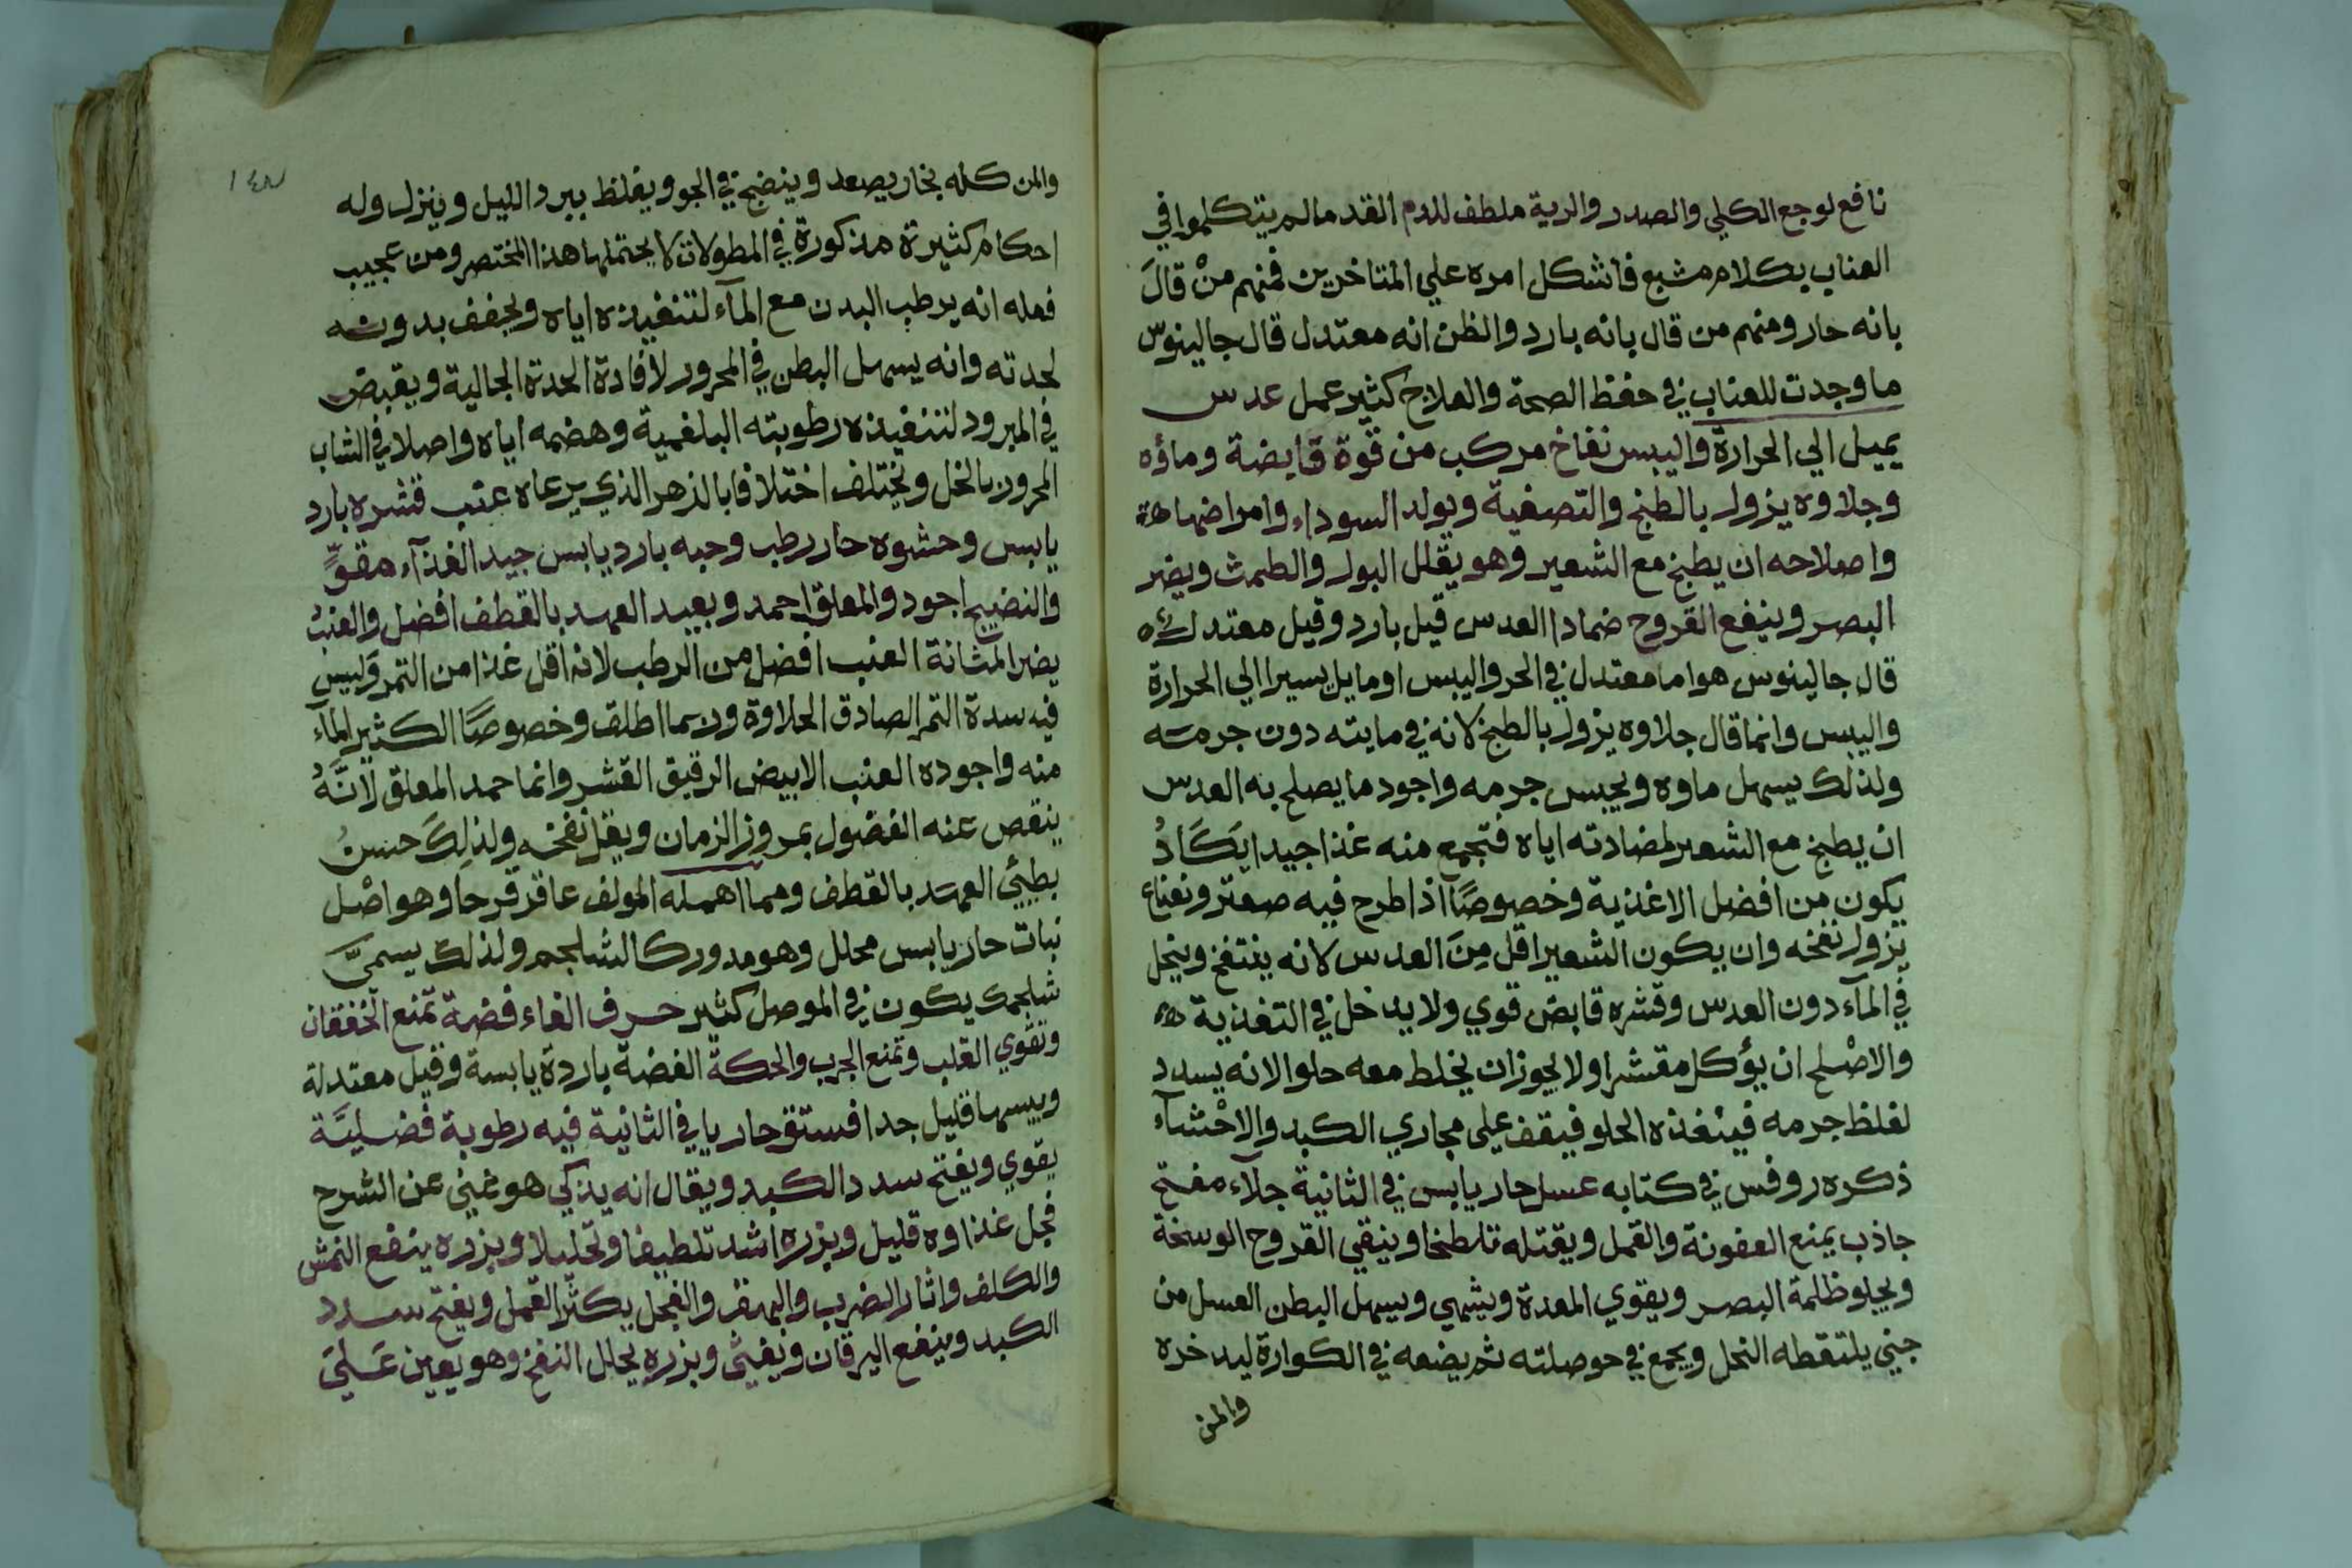 نافع لوجع الكلي والصدر والرية ملطف للدم القدما لم يتكلموا في
العناب بكلام مشبع فاشكل امره علي المتاخرين فمنهم منْ قالَ
بانه حار ومنهم من قال بانه بارد والظن انه معتدل قال جالينوس
ما وجدت للعناب في حفظ الصحة والعلاج كثير عمل عدس
يميل الي الحرارة واليبس نفاخ مركب من قوة قابضة وماؤه
وجلاوه يزول بالطبخ والتصفية ويولد السوداء وامراضها
واصلاحه ان يطبخ مع الشعير وهو يقلل البول والطمث ويضر
البصر وينفع القروح ضمادا العدس قيل بارد وقيل معتدل
قال جالينوس هو اما معتدل في الحر واليبس او مايل يسيرا الي الحرارة
واليبس وانما قال جلاوه يزول بالطبخ لانه في مايته دون جرمه
ولذلك يسهل ماوه ويحبس جرمه واجود ما يصلح به العدس
ان يطبخ مع الشعير لمضادته اياه فتجمع منه غذا جيدا يَكَادُ
يكون من افضل الاغذية وخصوصًا اذا طرح فيه صعتر ونعناع
يزول نفخه وان يكون الشعير اقل مِنَ العدس لانه ينتفخ وينحل
في المآء دون العدس وقشره قابض قوي ولا يدخل في التغذية
والاصْلح ان يؤكل مقشرا ولا يجوز ان يخلط معه حلو الانه يسدد
لغلظ جرمه فينفذه الحلو فيقف علي مجاري الكبد والاحْشاء
ذكره روفس في كتابه عسل حار يابس في الثانية جلآء مفتح
جاذب يمنع العفونة والقمل ويقتله تلطخا وينقي القروح الوسخة
ويجلو ظلمة البصر ويقوي المعدة ويشهي ويسهل البطن العسل من
جني يلتقطه النحل ويجمع في حوصلته ثم يضعه في الكوارة ليدخره
والمن
١٤٨
والمن كله بخار يصعد وينضج في الجو ويغلظ ببرد الليل وينزل وله
احكام كثيرة مذكورة في المطولات لا يحتملها هذا المختصر ومن عجيب
فعله انه يرطب البدن مع المآء لتنفيذه اياه ويجفف بدونه
لحدته وانه يسهل البطن في المحرور لافادة الحدة الجالية ويقبض
في المبرود لتنفيذه رطوبته البلغمية وهضمه اياه واصلا في الشاب
المحرور بالخل ويختلف اختلافا بالزهر الذي يرعاه عنب قشره بارد
يابس وحشوه حار رطب وحبه بارد يابس جيد الغذآء مقوٍّ
والنضيج اجود والمعلق احمد وبعيد العهد بالقطف افضل والعنبُ
يضر المثانة العنب افضل من الرطب لانه اقل غذا من التمر وَليس
فيه سدة التمر الصادق الحلاوة وربما اطلق وخصوصًا الكثير المآء
منه واجوده العنب الابيض الرقيق القشر وانما حمد المعلق لانَّهُ
ينقص عنه الفضول بمروز الزمان ويقل نفخه ولذلِكَ حسنُ
بطيئ العهد بالقطف ومما اهمله المولف عاقر قرحا وهو اصْل
نبات حار يابس محلل وهو مدور كالشلجم ولذلك يسميَّ
شلجمك يكون في الموصل كثير حرف الفاء فضة تمنع الخفقان
وتقوي القلب وتمنع الجرب والحكة الفضة باردة يابسة وقيل معتدلة
ويبسها قليل جدا فستق حار يا في الثانية فيه رطوبة فضليَّة
يقوي ويفتح سدد الكبد ويقال انه يذكي هو غني عن الشرح
فجل غذاوه قليل وبزره اشد تلطيفا وتحليلا وبزره ينفع النمش
والكلف واثار الضرب والبهق والفجل يكثّر القمل ويفتح سدد
الكبد وينفع اليرقان ويغثي وبزره يحلل النفخ وهو يعين عَليَ